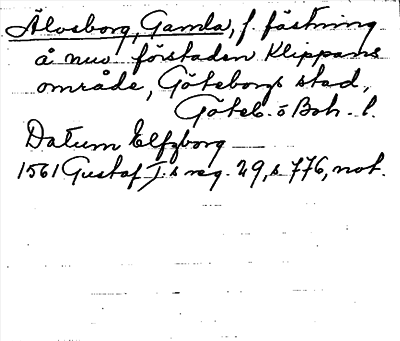 Älvsborg, Gamla, f. fästning
å nuv. förstaden Klippans
område, Göteborgs stad,
Göteb. o Boh. l.
Datum Elfzborg
1561 Gustaf I:s reg. 29, s. 776, not.